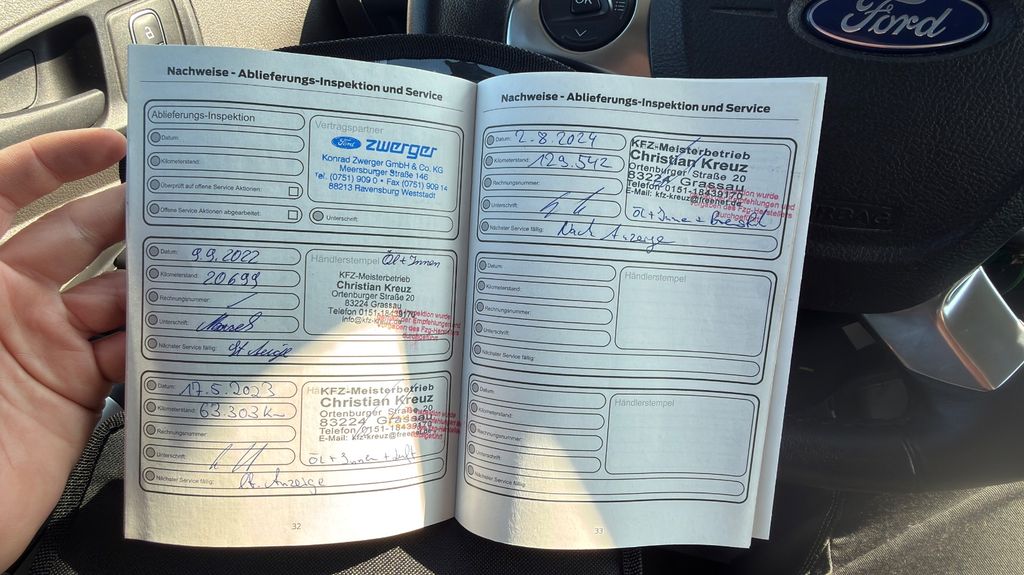 OK
Ford
Nachweise - Ablieferungs-Inspektion und Service
Ablieferungs-Inspektion
Datum:
Kilometerstand:
Überprüft auf offene Service Aktionen:
Offene Service Aktionen abgearbeitet:
Vertragspartner
Ford zwerger
Konrad Zwerger GmbH & Co. KG
Meersburger Straße 146
Tel. (0751) 909 0 • Fax (0751) 909 14
88213 Ravensburg Weststadt
Unterschrift:
Datum: 9.9.2022
Kilometerstand: 20699
Rechnungsnummer:
Unterschrift:
Nächster Service fällig:
Händlerstempel Öl + Innen
KFZ-Meisterbetrieb
Christian Kreuz
Ortenburger Straße 20
83224 Grassau
Telefon 0151-18439170
Datum: 17.5.2023
Kilometerstand: 63.303 Km
Rechnungsnummer:
Unterschrift:
Nächster Service fällig: Anzeige
KFZ-Meisterbetrieb
Christian Kreuz
Ortenburger Straße 20
83224 Grassau
Telefon 0151-18439170
E-Mail: kfz-kreuz@freenet.de
Öl + Innen + Luft
32
Nachweise - Ablieferungs-Inspektion und Service
Datum: 2.8.2024
Kilometerstand: 129.542
Rechnungsnummer:
Unterschrift:
Nächster Service fällig: Nach Anzeige
KFZ-Meisterbetrieb
Christian Kreuz
Ortenburger Straße 20
83224 Grassau
Telefon 0151-18439170
E-Mail: kfz-kreuz@freenet.de
Öl + Innen +
Datum:
Kilometerstand:
Rechnungsnummer:
Unterschrift:
Nächster Service fällig:
Händlerstempel
Datum:
Kilometerstand:
Rechnungsnummer:
Unterschrift:
Nächster Service fällig:
Händlerstempel
33
AIRBAG